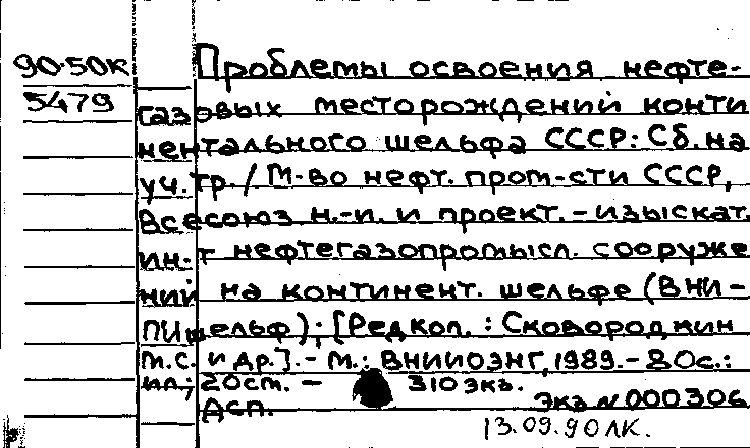 90-50к
5479
Проблемы освоения нефте-
газовых месторождений конти
нентального шельфа СССР: Сб. на
уч. тр. / М-во нефт. пром-сти СССР,
Всесоюз н.-и. и проект.-изыскат.
ин-т нефтегазопромысл. сооруже
ний на континент. шельфе (ВНИ-
ПИшельф); [Редкол. : Сковородкин
М.С. и др.]. - М.: ВНИИОЭНГ, 1989. - 80с.:
ил.; 20см. - 310 экз.
Дсп. Экз N 000306
13.09.90 ЛК.